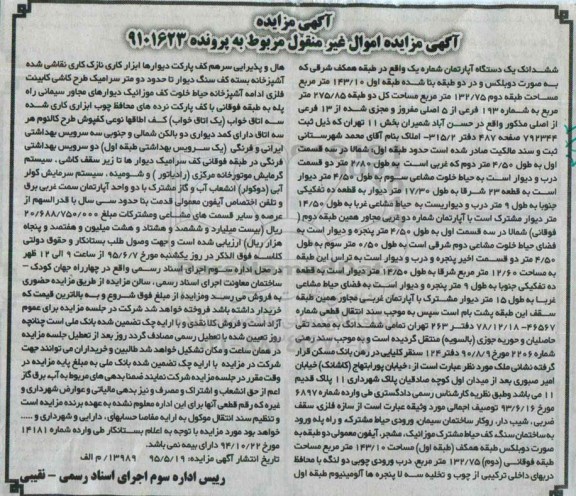 آگهی مزایده
آگهی مزایده اموال غیر منقول مربوط به پرونده ۹۱۰۱۶۲۳
ششدانگ یک دستگاه آپارتمان شماره یک واقع در طبقه همکف شرقی که
به صورت دوبلکس و در دو طبقه بنا شده طبقه اول ۱۴۳/۱۰ متر مربع
مساحت طبقه دوم ۱۳۲/۷۵ متر مربع مساحت کل دو طبقه ۲۷۵/۸۵ متر
مربع به شماره ۱۹۳ فرعی از ۵ اصلی مفروز و مجزی شده از ۱۳ فرعی
از اصلی مذکور واقع در حسن آباد شمیران بخش ۱۱ تهران که ذیل ثبت
۷۹۲۳۴۴ صفحه ۴۸۷ دفتر ۳۱۵/۲- املاک بنام آقای محمد شهرستانی
ثبت و سند مالکیت صادر شده است حدود طبقه اول: شمالا در سه قسمت
اول به طول ۴/۵۰ متر دوم که غربی است به طول ۲/۸۰ متر دو قسمت
درب و دیوار است به حیاط خلوت مشاعی سوم به طول ۴/۵۰ متر دیوار
است به قطعه ۲۳ شرقا به طول ۱۷/۳۰ متر دیوار به قطعه ده تفکیکی
جنوبا به طول ۹ متر درب و دیواریست به حیاط مشاعی غربا به طول ۱۴/۵۰
متر دیوار مشترک است با آپارتمان شماره دو غربی مجاور همین طبقه دوم (
فوقانی) شمالا در سه قسمت اول به طول ۴/۵۰ متر پنجره و دیوار است به
فضای حیاط خلوت مشاعی دوم شرقی است به طول ۰/۵۰ متر سوم به طول
۴/۵۰ متر دو قسمت اخیر پنجره و درب و دیوار است به تراس این طبقه
به مساحت ۱۲/۶۰ متر مربع شرقا به طول ۱۴/۵۰ متر دیوار است به قطعه
ده تفکیکی جنوبا به طول ۹ متر پنجره و دیوار است به فضای حیاط مشاعی
غربا به طول ۱۵ متر دیوار مشترک با آپارتمان غربی مجاور همین طبقه
سقف این طبقه پشت بام است سپس به موجب سند انتقال قطعی شماره
۴۶۵۶۷- ۷۸/۱۲/۱۸ دفتر ۲۶۳ تهران تمامی ششدانگ به محمد تقی
حاصلیان و حوریه جوزی (بالسویه) منتقل گردیده است و به موجب سند رهنی
شماره ۲۲۰۶ مورخ ۹۰/۸/۹ دفتر ۱۲۴ سنقر کلیایی در رهن بانک مسکن قرار
گرفته نشانی ملک مورد نظر عبارت است از: خیابان پورابتهاج (کاشانک) خیابان
امیر صبوری بعد از میدان اول کوچه صادقیان پلاک شهرداری ۱۱ پلاک قدیم
۱۱ می باشد وطبق نظریه کارشناس رسمی دادگستری طی وارده شماره ۶۸۹۷
مورخ ۹۳/۶/۱۶ توصیف اجمالی مورد وثیقه عبارت است از سازه فلزی، سقف
ضربی، شیب دار، روکار ساختمان سیمان، ورودی حیاط مشترک، و راه پله ورود
به ساختمان سنگ، کف حیاط مشترک موزائیک، مشجر، آیفون معمولی دو طبقه به
صورت دوبلکس طبقه همکف (طبقه اول) مساحت ۱۴۳/۱۰ متر مربع مساحت
طبقه فوقانی (دوم) ۱۳۲/۷۵ متر مربع، درب ورودی چوبی دو لنگه با محافظ
دربهای داخلی ترکیبی از چوب و تخلیه سه لا پنجره ها آلومینیوم طبقه اول
هال و پذیرایی سرهم کف پارکت دیوارها ابزار کاری نازک کاری نقاشی شده
آشپزخانه بسته کف سنگ دیوار تا حدود دو متر سرامیک طرح کاشی کابینت
فلزی ادامه آشپزخانه حیاط خلوت کف موزائیک دیوارهای مجاور سیمانی راه
پله به طبقه فوقانی با کف پارکت نرده های محافظ چوب ابزاری کاری شده
سه اتاق خواب (یک اتاق خواب) کف اطاقها نوعی کفپوش طرح کالنوم هر
سه اتاق دارای کمد دیواری دو بالکن شمالی و جنوبی سه سرویس بهداشتی
ایرانی و فرنگی (یک سرویس بهداشتی طبقه اول) دو سرویس بهداشتی
فرنگی در طبقه فوقانی کف سرامیک دیوار ها تا زیر سقف کاشی ، سیستم
گرمایش موتورخانه مرکزی (رادیاتور ) و شومینه ، سیستم سرمایش کولر
آبی (دوکولر) انشعاب آب و گاز مشترک با دو واحد آپارتمان سمت غربی برق
و تلفن اختصاص آیفون معمولی قدمت بنا حدود سی سال با قدرالسهم از
عرصه و سایر قسمت های مشاعی و مشترکات مبلغ ۲۰/۶۸۸/۷۵۰/۰۰۰
ریال (بیست میلیارد و ششصد و هشتاد و هشت میلیون و هفتصد و پنجاه
هزار ریال) ارزیابی شده است و جهت وصول طلب بستانکار و حقوق دولتی
کلاسه فوق الذکر در روز یکشنبه مورخ ۹۵/۶/۷ از ساعت ۹ الی ۱۲ ظهر
در محل اداره سوم اجرای اسناد رسمی واقع در چهارراه جهان کودک –
ساختمان معاونت اجرای اسناد رسمی ، سالن مزایده از طریق مزایده حضوری
به فروش می رسد و مزایده از مبلغ فوق شروع و به بالاترین قیمت که
خریدار داشته باشد فروخته خواهد شد شرکت در جلسه مزایده برای عموم
آزاد است و فروش کلا نقدی و با ارایه چک تضمین شده بانک ملی است چنانچه
روز تعیین شده با تعطیل رسمی مصادف گردد روز بعد از تعطیل جلسه مزایده
در همان ساعت و مکان تشکیل خواهد شد طالبین و خریداران می توانند جهت
شرکت در مزایده با ارایه چک تضمین شده بانک ملی به مبلغ پایه مزایده در
وقت مقرر در جلسه مزایده شرکت نمایند ضمنا بدهی های مربوط به آب، برق گاز
اعم از حق انشعاب و اشتراک و مصرف و نیز بدهی مالیاتی و عوارض شهرداری و
غیره که رقم قطعی آنها برای این اداره معلوم نشده به عهده برنده مزایده است
و تنظیم سند انتقال موکول به ارایه مفاصا حسابهای، دارایی و شهرداری و .....
خواهد بود مورد مزایده با توجه به اعلام بستانکار طی وارده شماره ۱۴۱۸۱
مورخ ۹۴/۱۰/۲۲ دارای بیمه نمی باشد.
تاریخ انتشار آگهی مزایده: ۹۵/۵/۱۹ ۱۳۹۸۹/ م الف
رییس اداره سوم اجرای اسناد رسمی - نقیبی